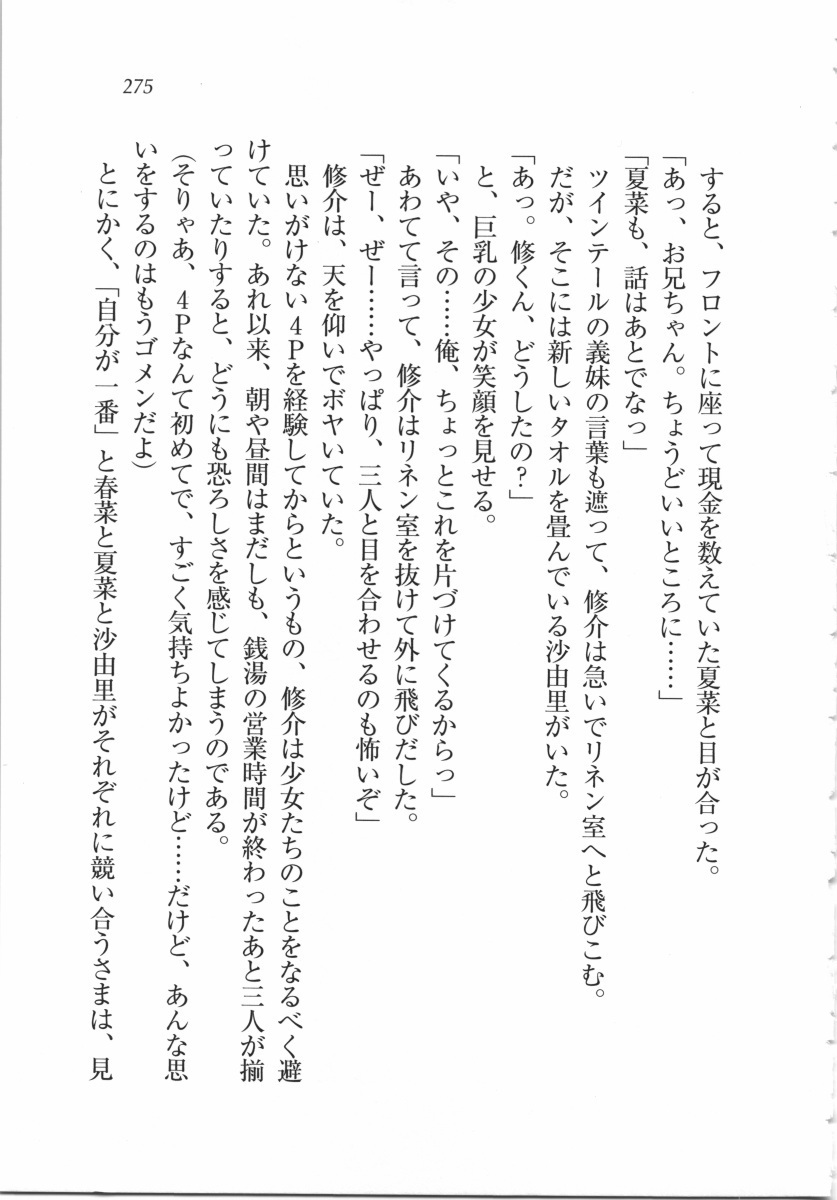 275
すると、フロントに座って現金を数えていた夏菜と目が合った。
「あっ、お兄ちゃん。ちょうどいいところに……」
「夏菜も、話はあとでなっ」
ツインテールの義妹の言葉も遮って、修介は急いでリネン室へと飛びこむ。
だが、そこには新しいタオルを畳んでいる沙由里がいた。
「あっ。修くん、どうしたの？」
と、巨乳の少女が笑顔を見せる。
「いや、その……俺、ちょっとこれを片づけてくるからっ」
あわてて言って、修介はリネン室を抜けて外に飛びだした。
「ぜー、ぜー……やっぱり、三人と目を合わせるのも怖いぞ」
修介は、天を仰いでボヤいていた。
思いがけない４Ｐを経験してからというもの、修介は少女たちのことをなるべく避
けていた。あれ以来、朝や昼間はまだしも、銭湯の営業時間が終わったあと三人が揃
っていたりすると、どうにも恐ろしさを感じてしまうのである。
（そりゃあ、４Ｐなんて初めてで、すごく気持ちよかったけど……だけど、あんな思
いをするのはもうゴメンだよ）
とにかく、「自分が一番」と春菜と夏菜と沙由里がそれぞれに競い合うさまは、見